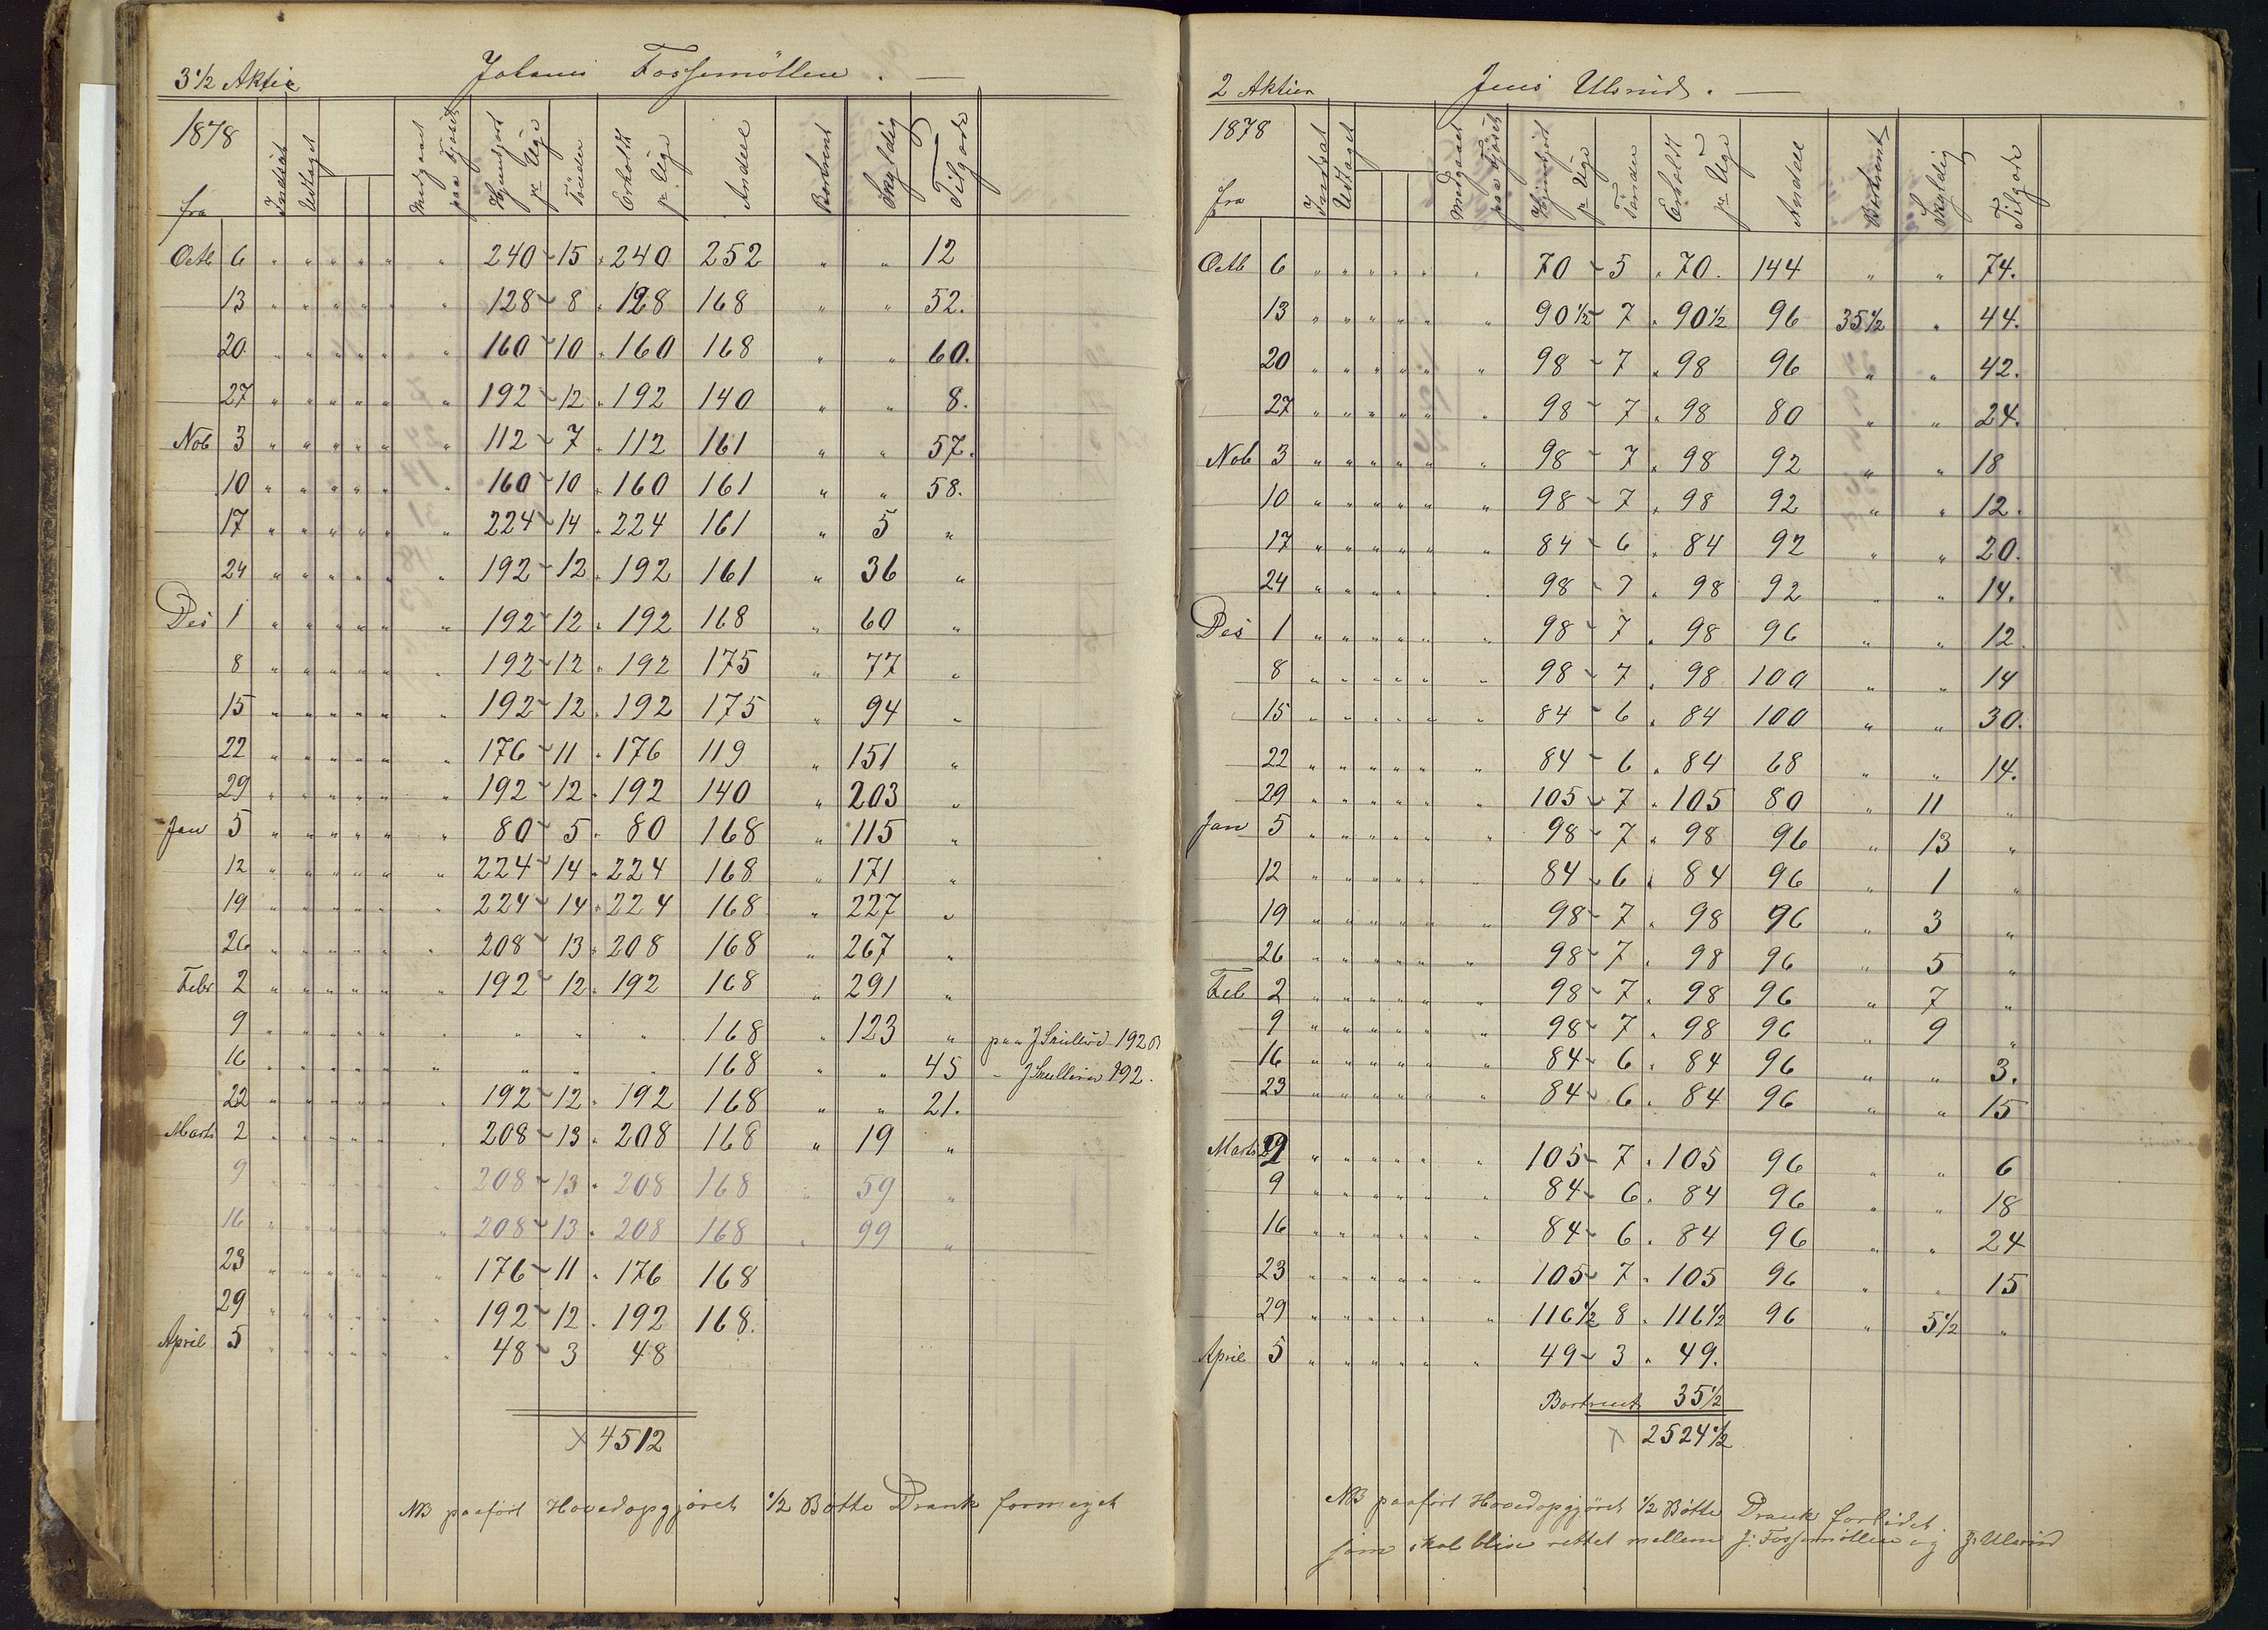 3 1/2 Aktie Johanis Fossemöllen . —
1878 Indsat Udtaget Medgaaet paa Fjöset Hjemkjört pr Uge Tönder Erholdt pr Uge Andeel Bortrent Skyldig Tilgode
fra
Octb 6 " " " " " " 240 ~ 15 " 240 252 " " 12
13 " " " " " " 128 ~ 8 " 128 168 " " 52.
20. " " " " " " 160 ~ 10 " 160 168 " " 60.
27 " " " " " " 192 ~ 12 " 192 140 " " 8.
Nob 3 " " " " " " 112 ~ 7 " 112 161 " " 57.
10 " " " " " " 160 ~ 10 " 160 161 " " 58.
17 " " " " " " 224 ~ 14 " 224 161 " 5 "
24 " " " " " " 192 ~ 12 " 192 161 " 36 "
Des 1 " " " " " " 192 ~ 12 " 192 168 " 60 "
8 " " " " " " 192 ~ 12 " 192 175 " 77 "
15 " " " " " " 192 ~ 12 " 192 175 " 94 "
22 " " " " " " 176 ~ 11 " 176 119 " 151 "
29 " " " " " " 192 ~ 12 " 192 140 " 203 "
Jan 5 " " " " " " 80 ~ 5 " 80 168 " 115 "
12 " " " " " " 224 ~ 14 " 224 168 " 171 "
19 " " " " " " 224 ~ 14 " 224 168 " 227 "
26 " " " " " " 208 ~ 13 " 208 168 " 267 "
Febr 2 " " " " " " 192 ~ 12 " 192 168 " 291 "
9 " " " " " " " " " 168 " 123 " paa J 192
16 " " " " " " " " " 168 " " 45 " J 192.
22 " " " " " " 192 ~ 12 " 192 168 " " 21.
Marts 2 " " " " " " 208 ~ 13 " 208 168 " 19 "
9 " " " " " " 208 ~ 13 " 208 168 " 59 "
16 " " " " " " 208 ~ 13 " 208 168 " 99 "
23 " " " " " " 176 ~ 11 " 176 168
29 " " " " " " 192 ~ 12 " 192 168.
April 5 " " " " " " 48 ~ 3 48
x 4512
NB paafört Hovedopgjöret 1/2 Bötte Drank formeget
2 Aktier Jens Ulsrud . —
1878 Indsat Udtaget Medgaaet paa Fjöset Hjemkjört pr Uge Tönder Erholdt pr Uge Andeel Bortrent Skyldig Tilgode
fra
Octb 6 " " " " " " 70 ~ 5 " 70. 144 " " 74.
13 " " " " " " 90 1/2 ~ 7 " 90 1/2 96 35 1/2 " 44.
20 " " " " " " 98 ~ 7 " 98 96 " " 42.
27 " " " " " " 98 ~ 7 " 98 80 " " 24.
Nob 3 " " " " " " 98 ~ 7 " 98 92 " " 18
10 " " " " " " 98 ~ 7 " 98 92 " " 12.
17 " " " " " " 84 ~ 6 " 84 92 " " 20.
24 " " " " " " 98 ~ 7 " 98 92 " " 14.
Des 1 " " " " " " 98 ~ 7 " 98 96 " " 12.
8 " " " " " " 98 ~ 7 " 98 100 " " 14
15 " " " " " " 84 ~ 6 " 84 100 " " 30.
22 " " " " " " 84 ~ 6 " 84 68 " " 14.
29 " " " " " " 105 ~ 7 " 105 80 " 11 "
Jan 5 " " " " " " 98 ~ 7 " 98 96 " 13 "
12 " " " " " " 84 ~ 6 " 84 96 " 1 "
19 " " " " " " 98 ~ 7 " 98 96 " 3 "
26 " " " " " " 98 ~ 7 " 98 96 " 5 "
Feb 2 " " " " " " 98 ~ 7 " 98 96 " 7 "
9 " " " " " " 98 ~ 7 " 98 96 " 9 "
16 " " " " " " 84 ~ 6 " 84 96 " " 3.
23 " " " " " " 84 ~ 6 " 84 96 " " 15
Marts 2 " " " " " " 105 ~ 7 " 105 96 " " 6
9 " " " " " " 84 ~ 6 " 84 96 " " 18
16 " " " " " " 84 ~ 6 " 84 96 " " 24
23 " " " " " " 105 ~ 7 " 105 96 " " 15
29 " " " " " " 116 1/2 8 " 116 1/2 96 " 5 1/2 "
April 5 " " " " " " 49 ~ 3 " 49.
Bortrent 35 1/2
x 2524 1/2
NB paafört Hovedopgjöret 1/2 Bötte Drank forlidet.
som skal blive rettet mellem J. Fossemöllen og J. Ulsrud